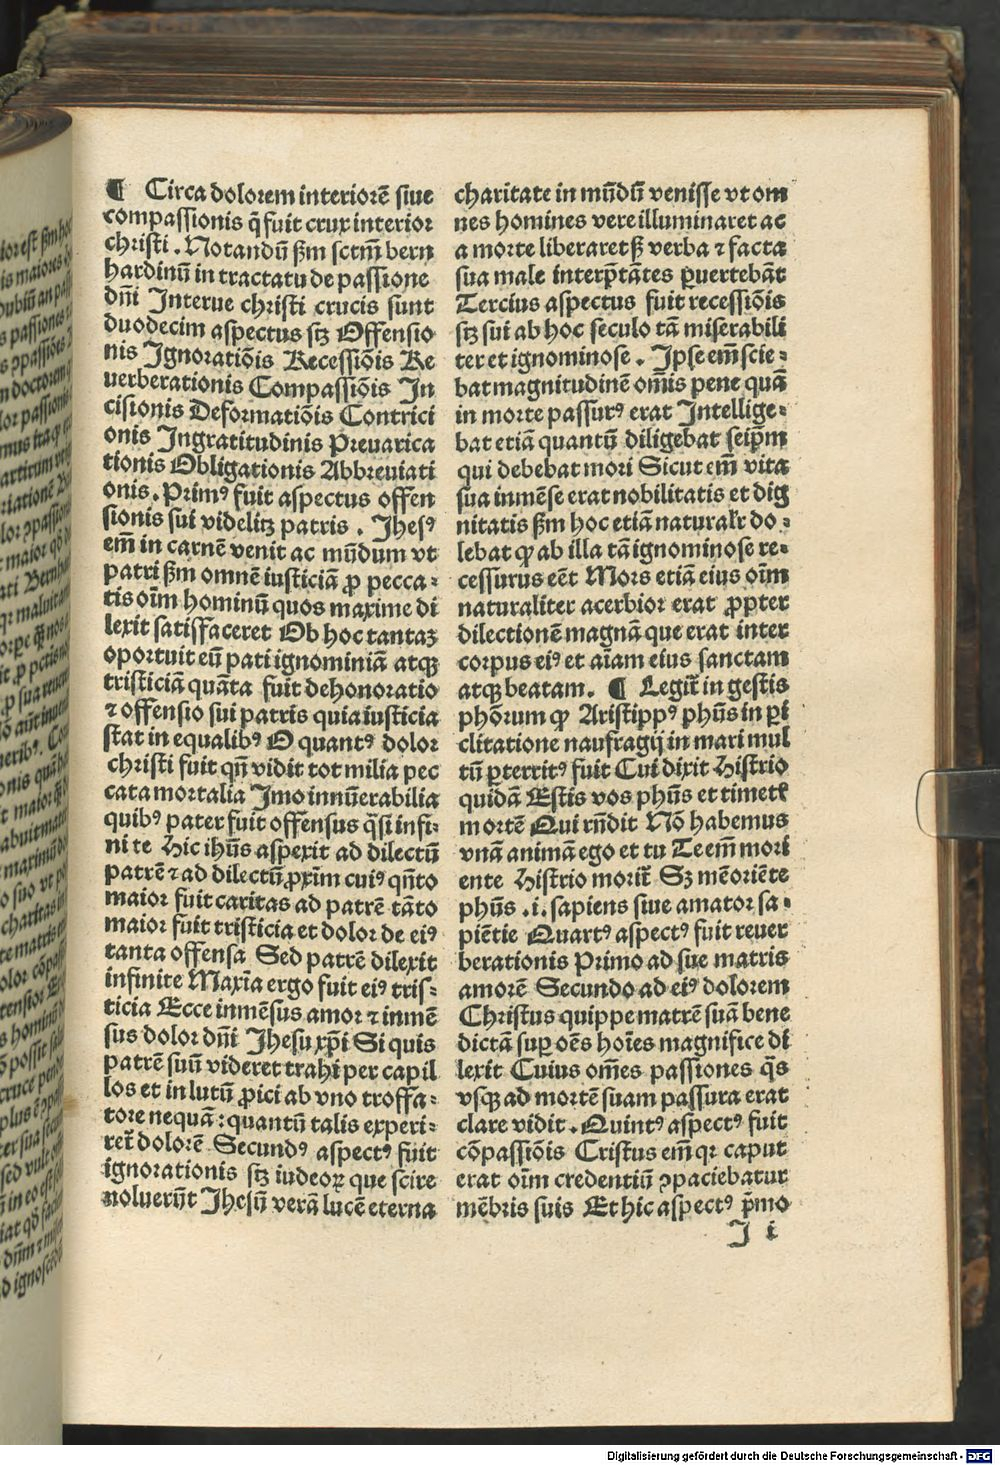 ¶ Circa dolorem interiorē siue
compassionis q̄ fuit crux interior
christi . Notandū ẜm sctm̄ bern
hardinū in tractatu de passione
dn̄i Interue christi crucis sunt
duodecim aspectus sꝫ Offensio
nis Ignoratiōis Recessiōis Re
uerberationis Compassiōis In
cisionis Deformatiōis Contrici
onis Ingratitudinis Preuarica
tionis Obligationis Abbreuiati
onis. Primꝰ fuit aspectus offen
sionis sui videlitꝫ patris . Jhesꝰ
em̄ in carnē venit ac mūdum vt
patri ẜm omnē iusticiā ꝓ pecca-
tis oīm hominū quos maxime di
lexit satisfaceret Ob hoc tantaꝫ
oportuit eū pati ignominiā atqꝫ
tristiciā quāta fuit dehonoratio
⁊ offensio sui patris quia iusticia
stat in equalibꝰ O quantꝰ dolor
christi fuit qn̄ vidit tot milia pec
cata mortalia Imo innūerabilia
quibꝰ pater fuit offensus q̄si infi-
ni te Hic ihūs aspexit ad dilectū
patrē ⁊ ad dilectū ꝓxīm cuiꝰ qn̄to
maior fuit caritas ad patrē tāto
maior fuit tristicia et dolor de eiꝰ
tanta offensa Sed patrē dilexit
infinite Maxīa ergo fuit eiꝰ tris-
ticia Ecce inmēsus amor ⁊ inmē
sus dolor dn̄i Jhesu xp̄i Si quis
patrē suū videret trahi per capil
los et in lutū ꝓici ab vno troffa-
tore nequā : quantū talis experi-
ret̄ dolorē Secundꝰ aspectꝰ fuit
ignorationis sꝫ iudeoꝝ que scire
noluerūt Jhesū verā lucē eterna
charitate in mūdū venisse vt om
nes homines vere illuminaret ac
a morte liberaret sꝫ verba ⁊ facta
sua male interp̄tātes ꝑuertebāt
Tercius aspectus fuit recessiōis
sꝫ sui ab hoc seculo tā miserabili
ter et ignominose . Ipse em̄ scie-
bat magnitudinē om̄is pene quā
in morte passurꝰ erat Intellige-
bat etiā quantū diligebat seip̄m
qui debebat mori Sicut em̄ vita
sua inmēse erat nobilitatis et dig
nitatis ẜm hoc etiā naturalr̄ do-
lebat ꝙ ab illa tā ignominose re-
cessurus eēt Mors etiā eius oīm
naturaliter acerbior erat ꝓpter
dilectionē magnā que erat inter
corpus eiꝰ et aīam eius sanctam
atqꝫ beatam. ¶ Legit̄ in gestis
phōrum ꝙ Aristippꝰ phūs in ꝑi
clitatione naufragij in mari mul
tū ꝑterritꝰ fuit Cui dixit Histrio
quidā Estis vos phūs et timetꝭ
mortē Qui rn̄dit Nō habemus
vnā animā ego et tu Te em̄ mori
ente Histrio morit̄ Sꝫ me moriēte
phūs .i. sapiens siue amator sa-
piētie Quartꝰ aspectꝰ fuit reuer
berationis Primo ad sue matris
amorē Secundo ad eiꝰ dolorem
Christus quippe matrē suā bene
dictā suꝑ oēs hoīes magnifice di
lexit Cuius om̄es passiones q̄s
vsqꝫ ad mortē suam passura erat
clare vidit . Quintꝰ aspectꝰ fuit
cōpassiōis Cristus em̄ qꝛ caput
erat oīm credentiū ꝯpaciebatur
mēbris suis Et hic aspectꝰ p̄mo
J i
Digitalisierung gefördert durch die Deutsche Forschungsgemeinschaft - DFG